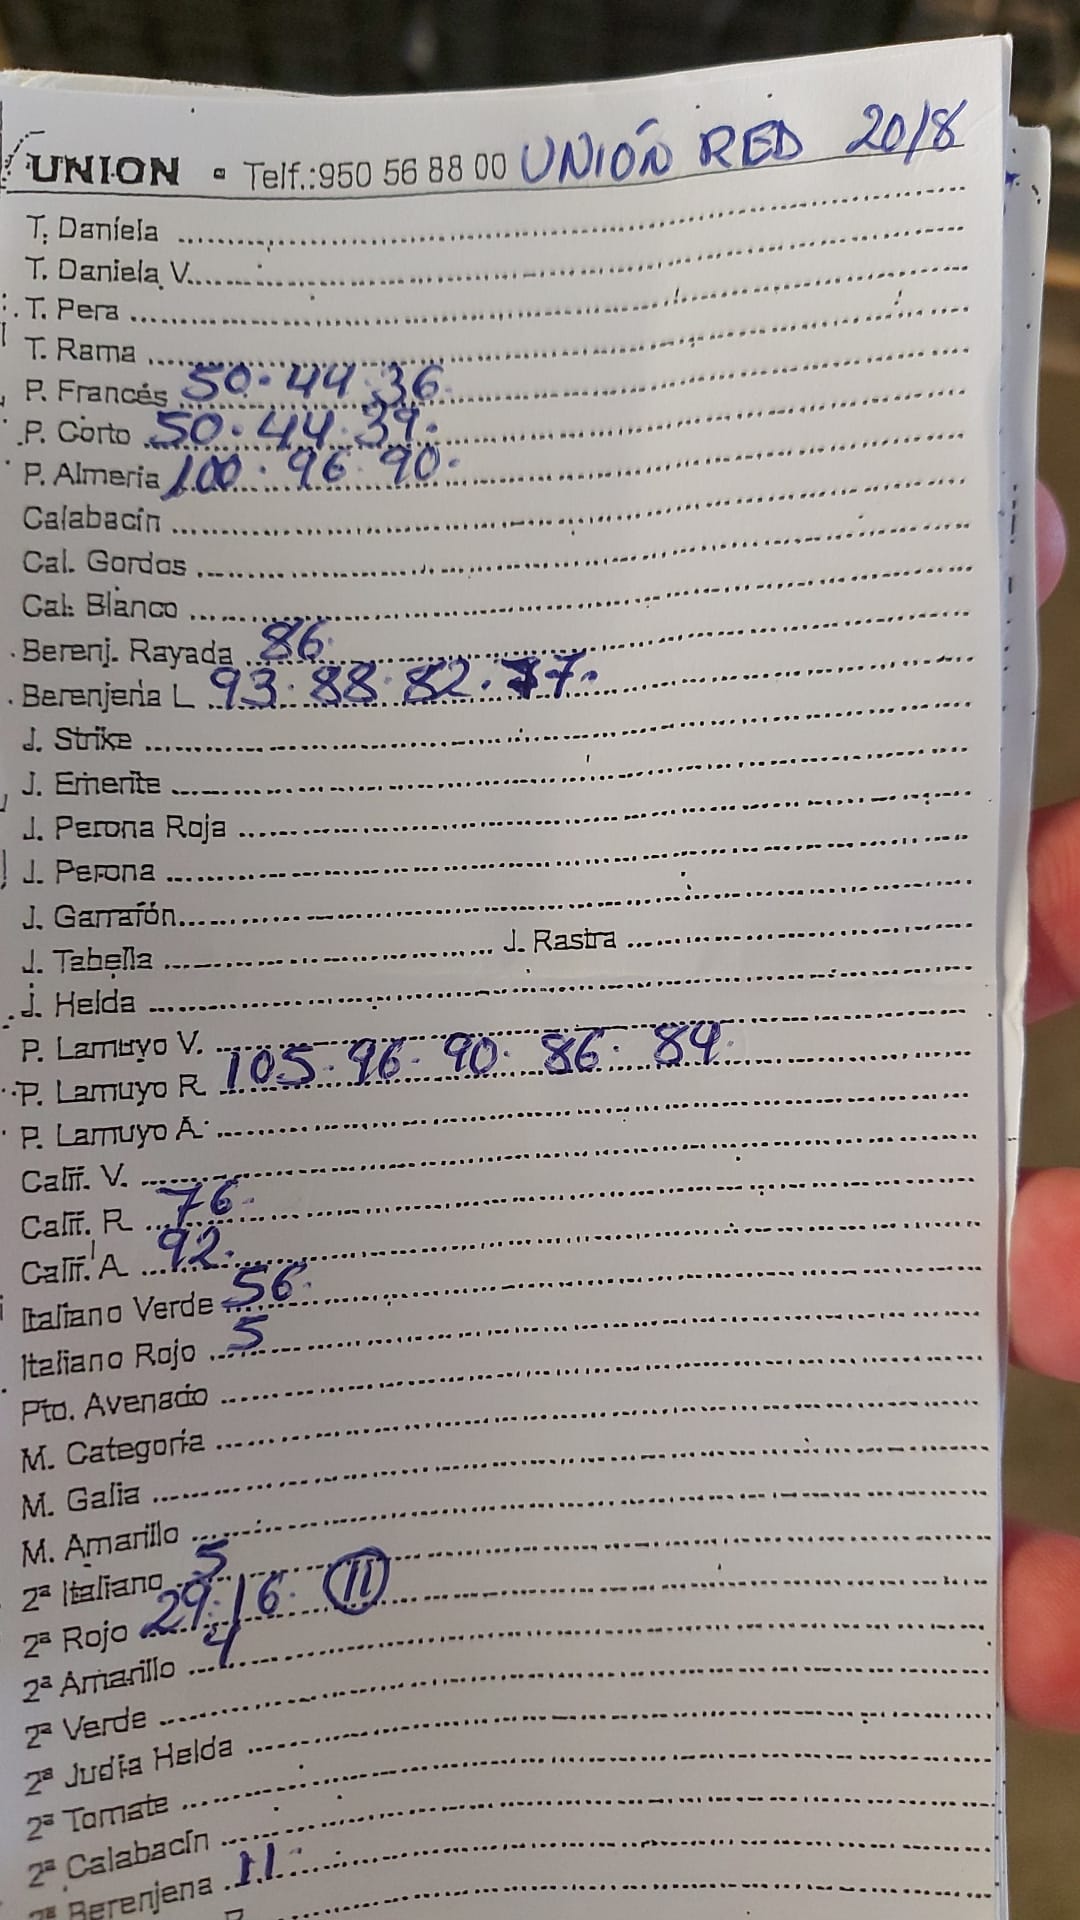 UNION · Telf.:950 56 88 00 UNIÓN RED 20/8
T. Daniela
T. Daniela V.
T. Pera
T. Rama
P. Francés 50. 44. 36.
P. Corto 50. 44. 39.
P. Almería 100. 96. 90.
Calabacín
Cal. Gordos
Cal. Blanco
Berenj. Rayada 86.
Berenjena L 93. 88. 82. 77.
J. Strike
J. Emerite
J. Perona Roja
J. Perona
J. Garrafón
J. Tabella J. Rastra
J. Helda
P. Lamuyo V.
P. Lamuyo R 105. 96. 90. 86. 84.
P. Lamuyo A
Calif. V.
Calif. R 76.
Calif. A 92.
Italiano Verde 56.
Italiano Rojo 5
Pto. Avenado
M. Categoría
M. Galia
M. Amarillo
2ª Italiano 5
2ª Rojo 29. 16. 11
2ª Amarillo 4
2ª Verde
2ª Judía Helda
2ª Tomate
2ª Calabacín
2ª Berenjena 11.